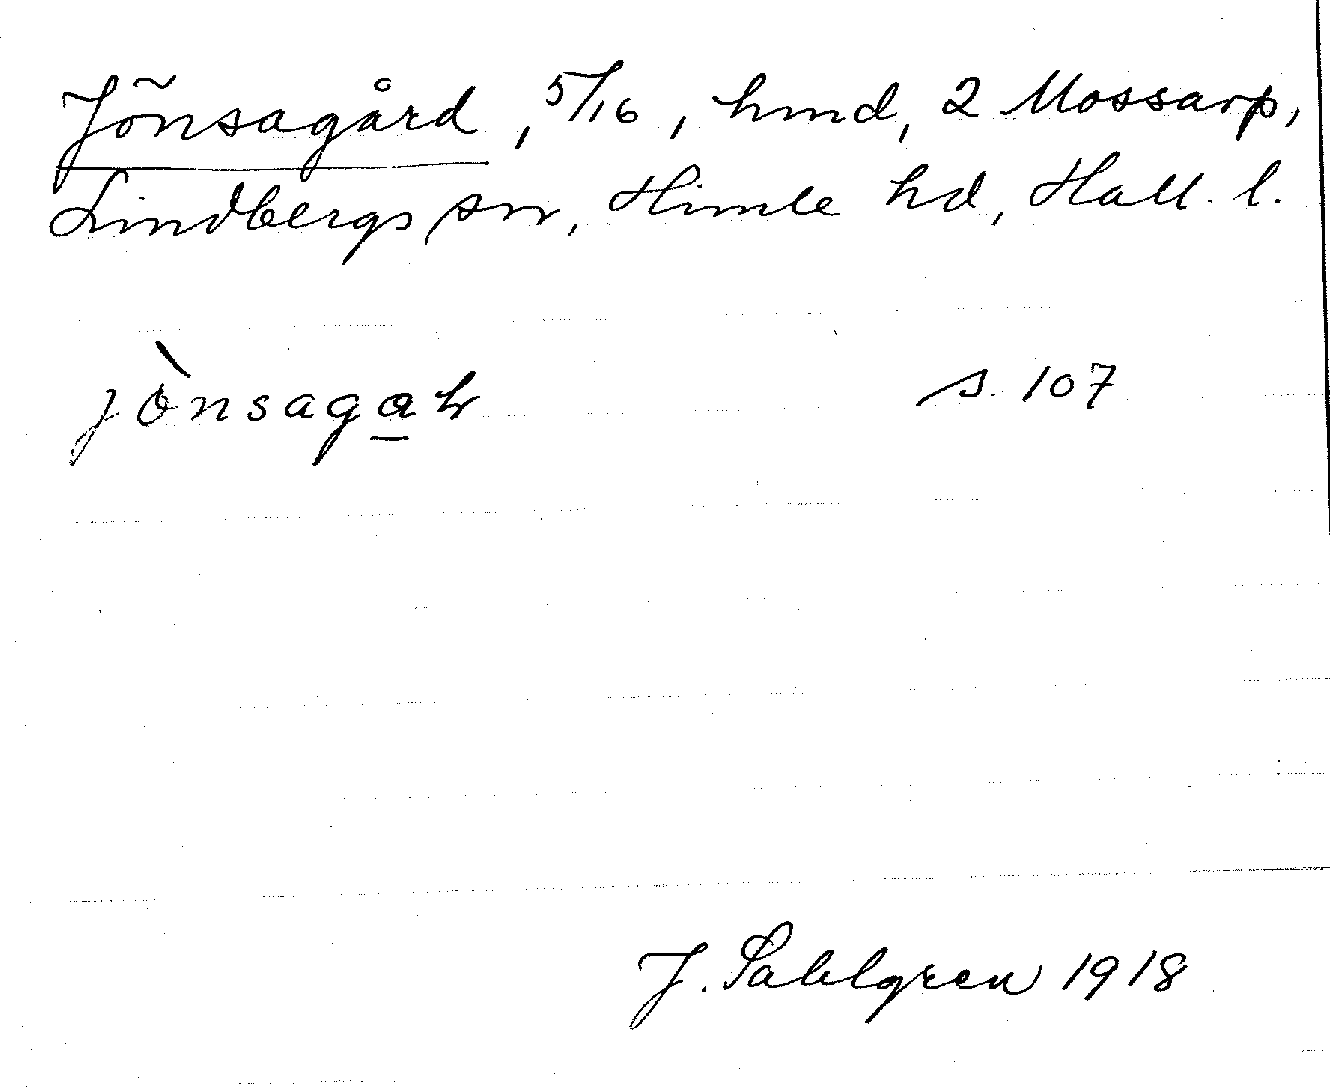 Jönsagård, 5/16, hmd, 2 Mossarp,
Lindbergs sn, Himle hd, Hall. l.
jònsagar s. 107
J. Sahlgren 1918